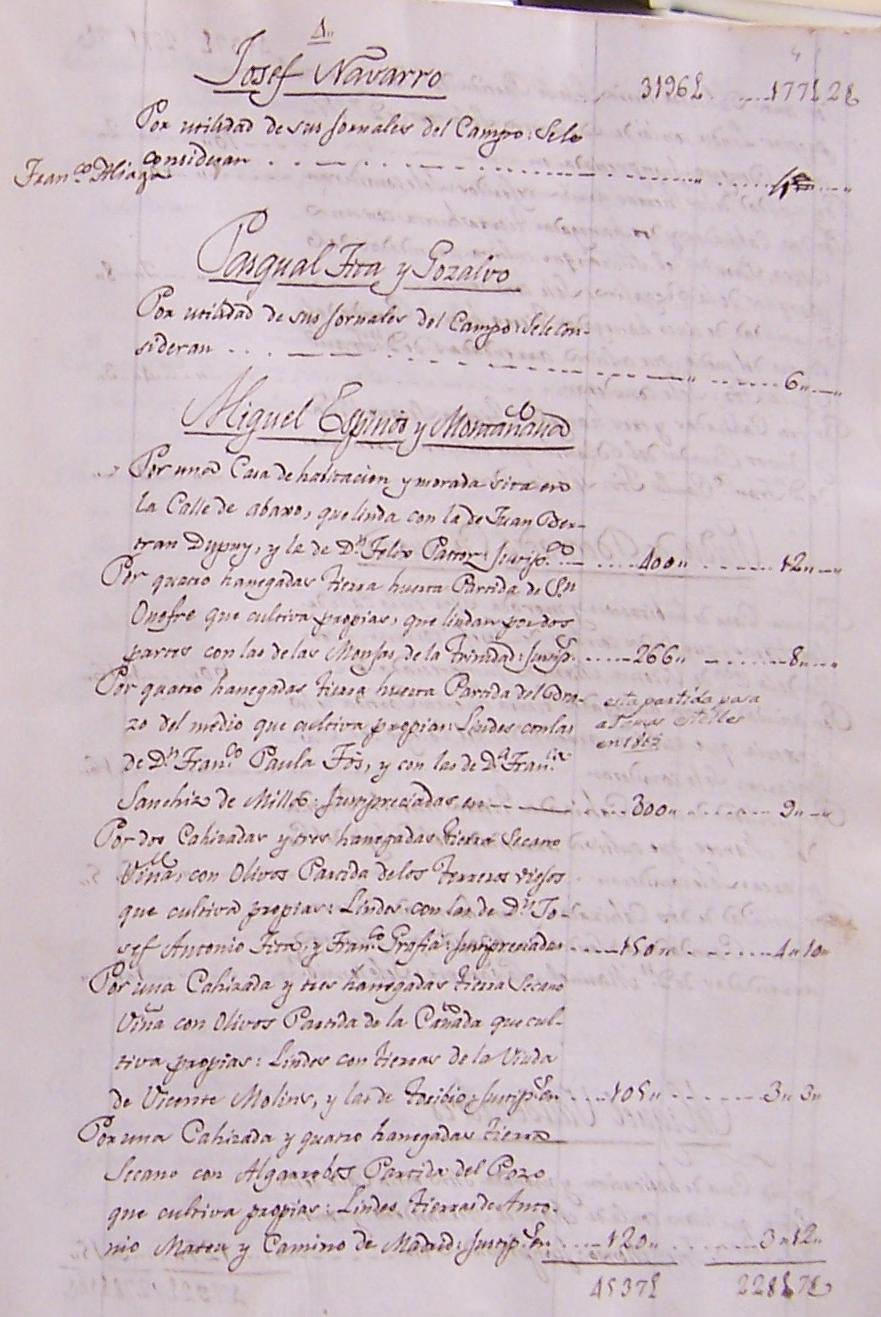 Josef Navarro 3196£ 177£ 2s
Por utilidad de sus Jornales del Campo: Sele
consideran
Fran.co Aliaga
Pasqual Fita y Gozalvo
Por utilidad de sus Jornales del Campo: Sele con-
sideran 6
Miguel Espinos y
Por una Casa de habitacion y morada sita en
la Calle de abaxo, que linda con la de Juan Ber-
tran Dupuy, y la de D.n Felix Pastor: Justip.do 400 12
Por quatro hanegadas tierra huerta Partida de S.n
Onofre que cultiva propias, que lindan por dos
partes con las de las Monjas de la Trinidad: Justip.s 266 8
Por quatro hanegadas tierra huerta Partida del Bra-
esta partida pasa
zo del medio que cultiva propias: Lindes con las
a Tomas
en
de D.n Fran.co Paula Fos, y con las de D.a Fran.ca
Sanchiz de Milló: Justipreciadas en 300 9
Por dos Cahizadas y tres hanegadas tierra Secano
Viña, con Olivos Partida de los Terreros viejos
que cultiva propias: Lindes con las de D.n Jo-
sef Antonio Fita, y Fran.co Grafiá: Justipreciadas 150 4 10
Por una Cahizada y tres hanegadas tierra Secano
Viña con Olivos Partida de la Cañada que cul-
tiva propias: Lindes con tierras de la Viuda
de Vicente Molins, y las de Toribio: Justip.s en 105 3 3
Por una Cahizada y quatro hanegadas tierra
Secano con Algarrobos Partida del Pozo
que cultiva propias: Lindes tierras de Anto-
nio Mateu y Camino de Madrid: Justip.s en 120 3 12
4537£ 228£ 7s